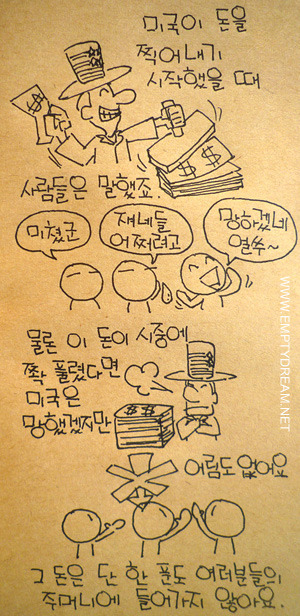 미국이 돈을
찍어내기
시작했을 때
$
$
$
사람들은 말했죠.
미쳤군
쟤네들
어쩌려고
망하겠네
얼쑤~
물론 이 돈이 시중에
쫙 풀렸다면
미국은
망했겠지만
어림도 없어요
그 돈은 단 한 푼도 여러분들의
주머니에 들어가지 않아요.
WWW.EMPTYDREAM.NET